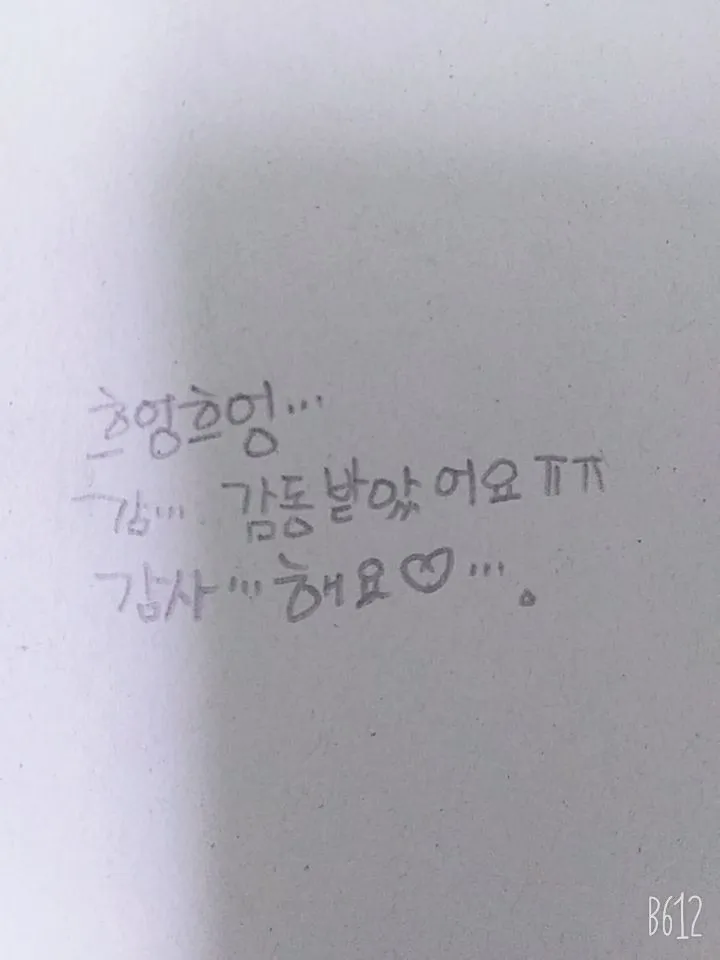 흐엉흐엉...
감... 감동받았어요ㅠㅠ
감사...해요♡....
B612